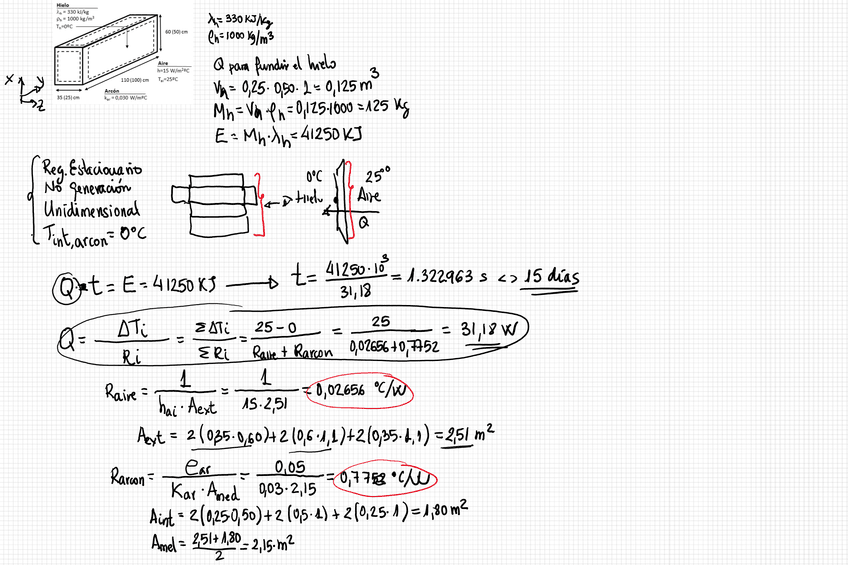 Hielo
λh = 330 kJ/kg
ρh = 1000 kg/m³
Th=0ºC
60 (50) cm
Aire
h=15 W/m²ºC
T∞=25ºC
110 (100) cm
35 (25) cm
Arcón
kar = 0,030 W/mºC
X
y
Z
λh = 330 KJ/kg
ρh = 1000 kg/m³
Q para fundir el hielo
Vh = 0,25 · 0,50 · 1 = 0,125 m³
Mh = Vh · ρh = 0,125·1000 = 125 Kg
E = Mh·λh = 41250 KJ
Reg. Estacionario
No Generación
Unidimensional
Tint,arcon = 0ºC
0ºC
Hielo
25ºº
Aire
Q
Q · t = E = 41250 KJ → t = 41250·10³ / 31,18 = 1.322963 s <> 15 días
Q = ΔTi / Ri = ΣΔTi / ΣRi = 25-0 / Raire + Rarcon = 25 / 0,02656+0,7752 = 31,18 W
Raire = 1 / hai · Aext = 1 / 15·2,51 = 0,02656 ºC/W
Aext = 2(0,35·0,60)+2(0,6·1,1)+2(0,35·1,1) = 2,51 m²
Rarcon = ear / Kar · Amed = 0,05 / 0,03·2,15 = 0,7752 ºC/W
Aint = 2(0,25·0,50)+2(0,5·1)+2(0,25·1) = 1,80 m²
Amel = 2,51+1,80 / 2 = 2,15·m²